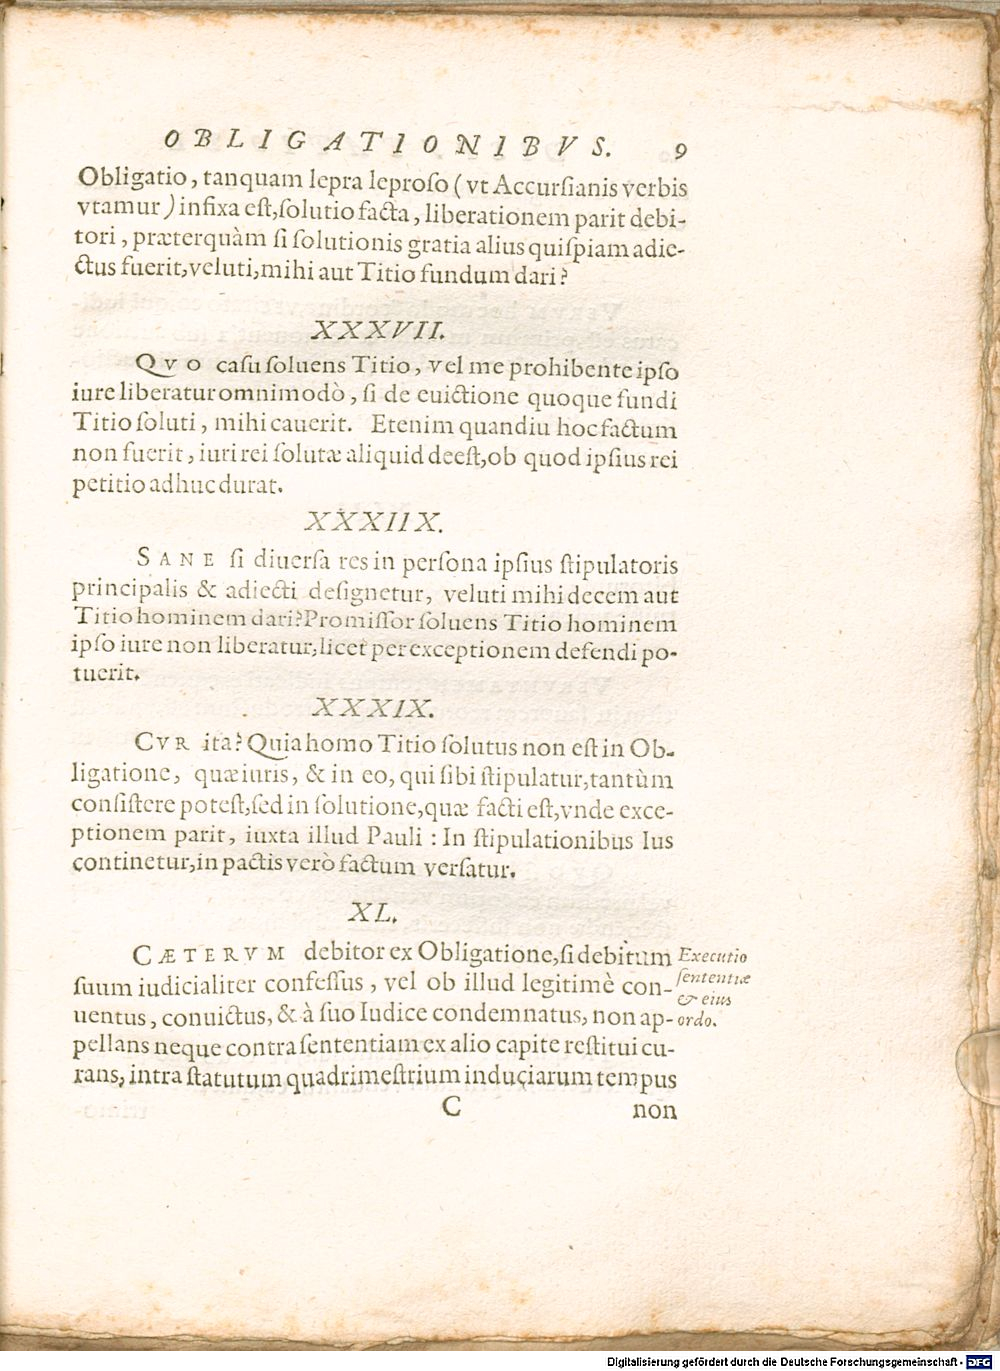 OBLIGATIONIBVS. 9
Obligatio, tanquam lepra leproſo (vt Accurſianis verbis
vtamur) infixa eſt, ſolutio facta, liberationem parit debi-
tori, præterquàm ſi ſolutionis gratia alius quiſpiam adie-
ctus fuerit, veluti, mihi aut Titio fundum dari?
XXXVII.
QVO caſu ſoluens Titio, vel me prohibente ipſo
iure liberatur omnimodò, ſi de euictione quoque fundi
Titio ſoluti, mihi cauerit. Etenim quandiu hoc factum
non fuerit, iuri rei ſolutæ aliquid deeſt, ob quod ipſius rei
petitio adhuc durat.
XXXIIX.
SANE ſi diuerſa res in perſona ipſius ſtipulatoris
principalis & adiecti deſignetur, veluti mihi decem aut
Titio hominem dari? Promiſſor ſoluens Titio hominem
ipſo iure non liberatur, licet per exceptionem defendi po-
tuerit.
XXXIX.
CVR ita? Quia homo Titio ſolutus non eſt in Ob-
ligatione, quæ iuris, & in eo, qui ſibi ſtipulatur, tantùm
conſiſtere poteſt, ſed in ſolutione, quæ facti eſt, vnde exce-
ptionem parit, iuxta illud Pauli: In ſtipulationibus Ius
continetur, in pactis verò factum verſatur.
XL.
CÆTERVM debitor ex Obligatione, ſi debitum
ſuum iudicialiter confeſſus, vel ob illud legitimè con-
uentus, conuictus, & à ſuo Iudice condemnatus, non ap-
pellans neque contra ſententiam ex alio capite reſtitui cu-
rans, intra ſtatutum quadrimeſtrium induciarum tempus
Executio
ſententiæ
& eius
ordo.
C non
Digitalisierung gefördert durch die Deutsche Forschungsgemeinschaft - DFG